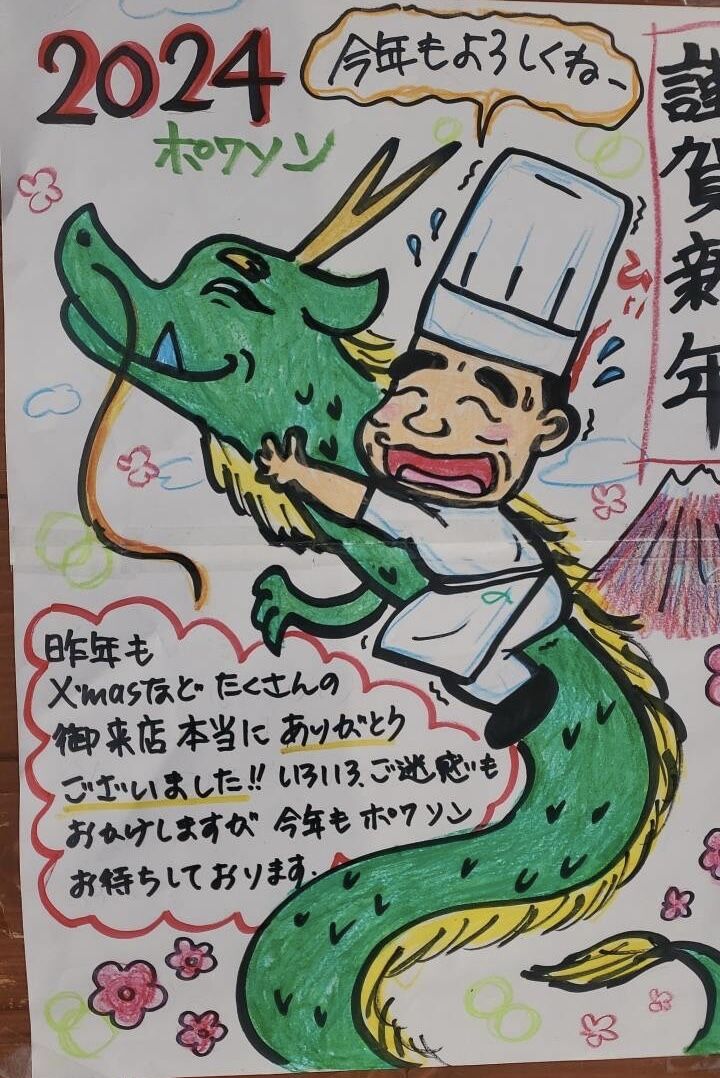 2024
ポワソン
今年もよろしくね~
謹賀新年
昨年も
X'masなど たくさんの
御来店 本当に ありがとう
ございました!! いろいろ、ご迷惑も
おかけしますが 今年も ポワソン
お待ちしております。